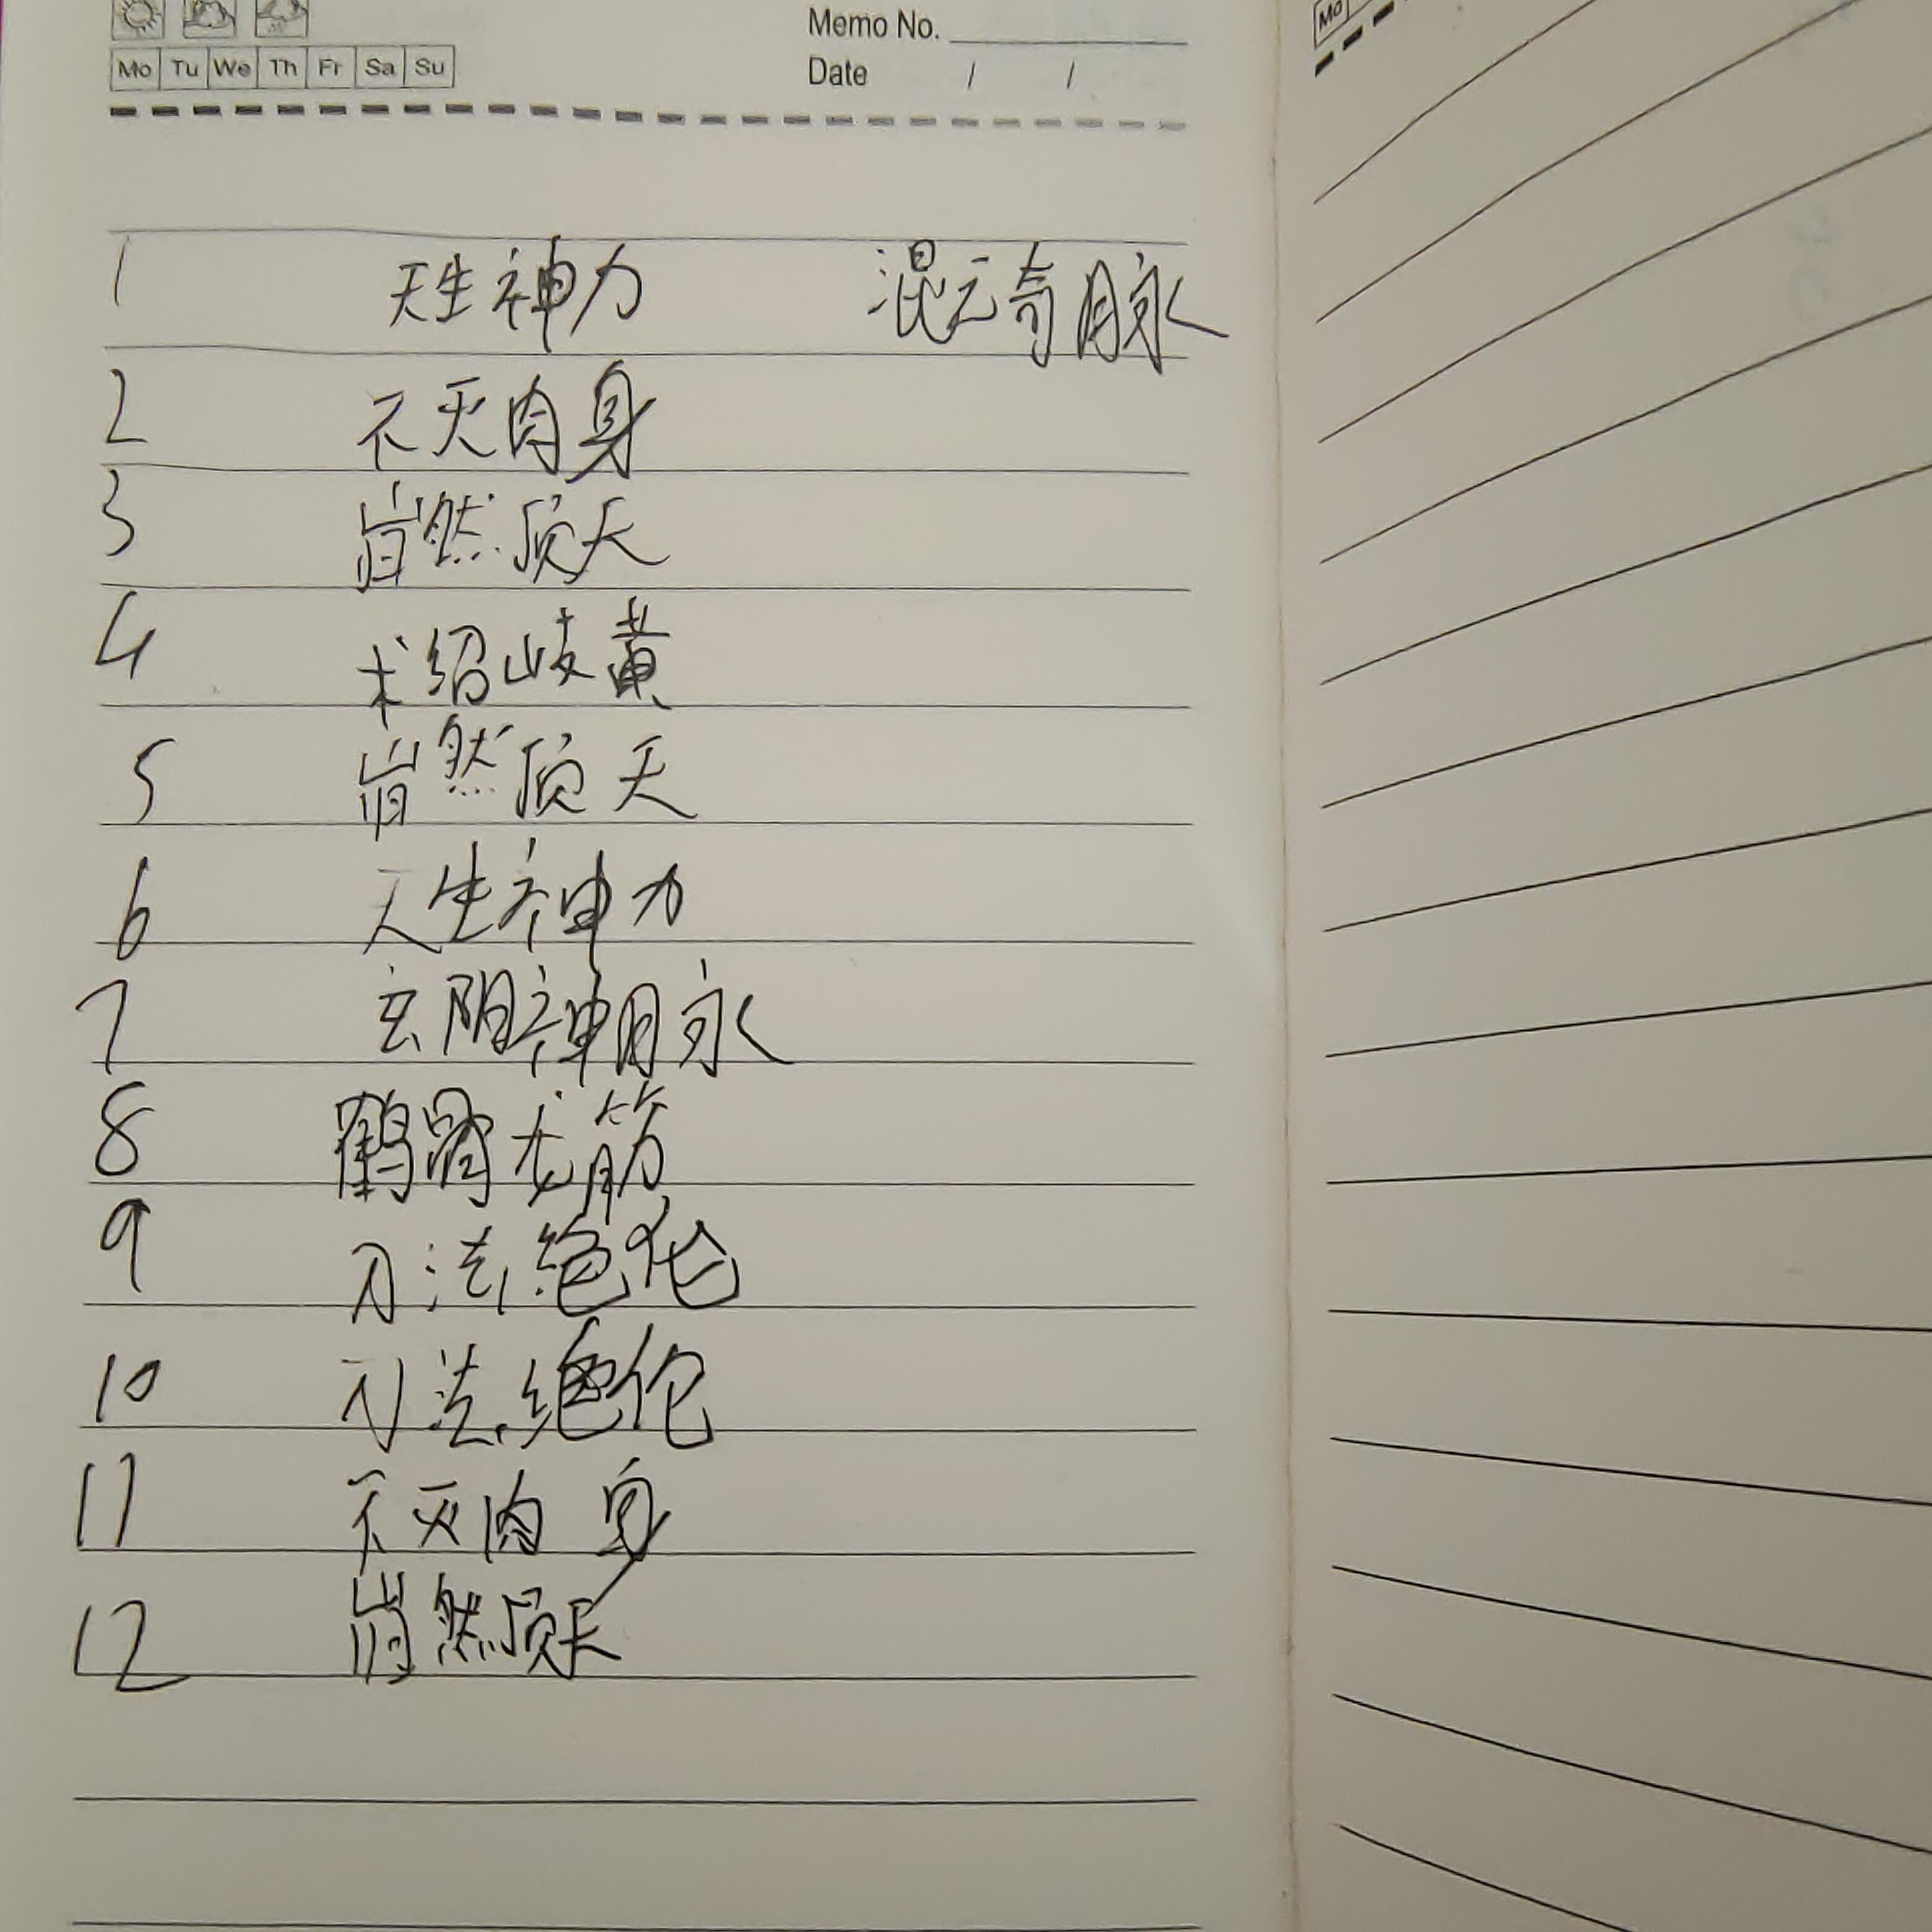 Memo No.
Mo Tu We Th Fr Sa Su
Date / /
Mo
1 天生神力 混元奇脉
2 不灭肉身
3 岿然顶天
4 术绍岐黄
5 岿然顶天
6 天生神力
7 玄阴神脉
8 鹤骨龙筋
9 刀法绝伦
10 刀法绝伦
11 不灭肉身
12 岿然顶天